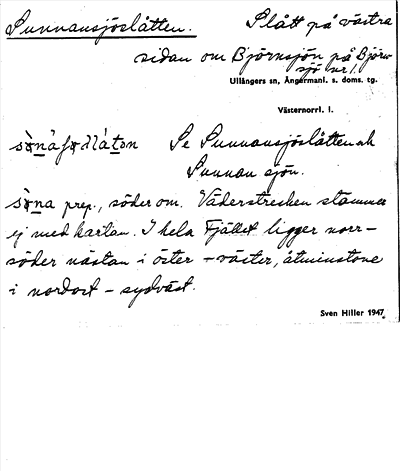 Sunnansjöslåtten. Slått på västra
sidan om Björnsjön på Björn-
sjö nr 1.
Ullångers sn, Ångermanl. s. doms. tg.
Västernorrl. l.
Se Sunnansjöslåtten och
Sunnan sjön.
prep., söder om. Väderstrecken stämma
ej med kartan. I hela Fjället ligger norr-
söder nästan i öster – väster, åtminstone
i nordost – sydväst.
Sven Hiller 1947.